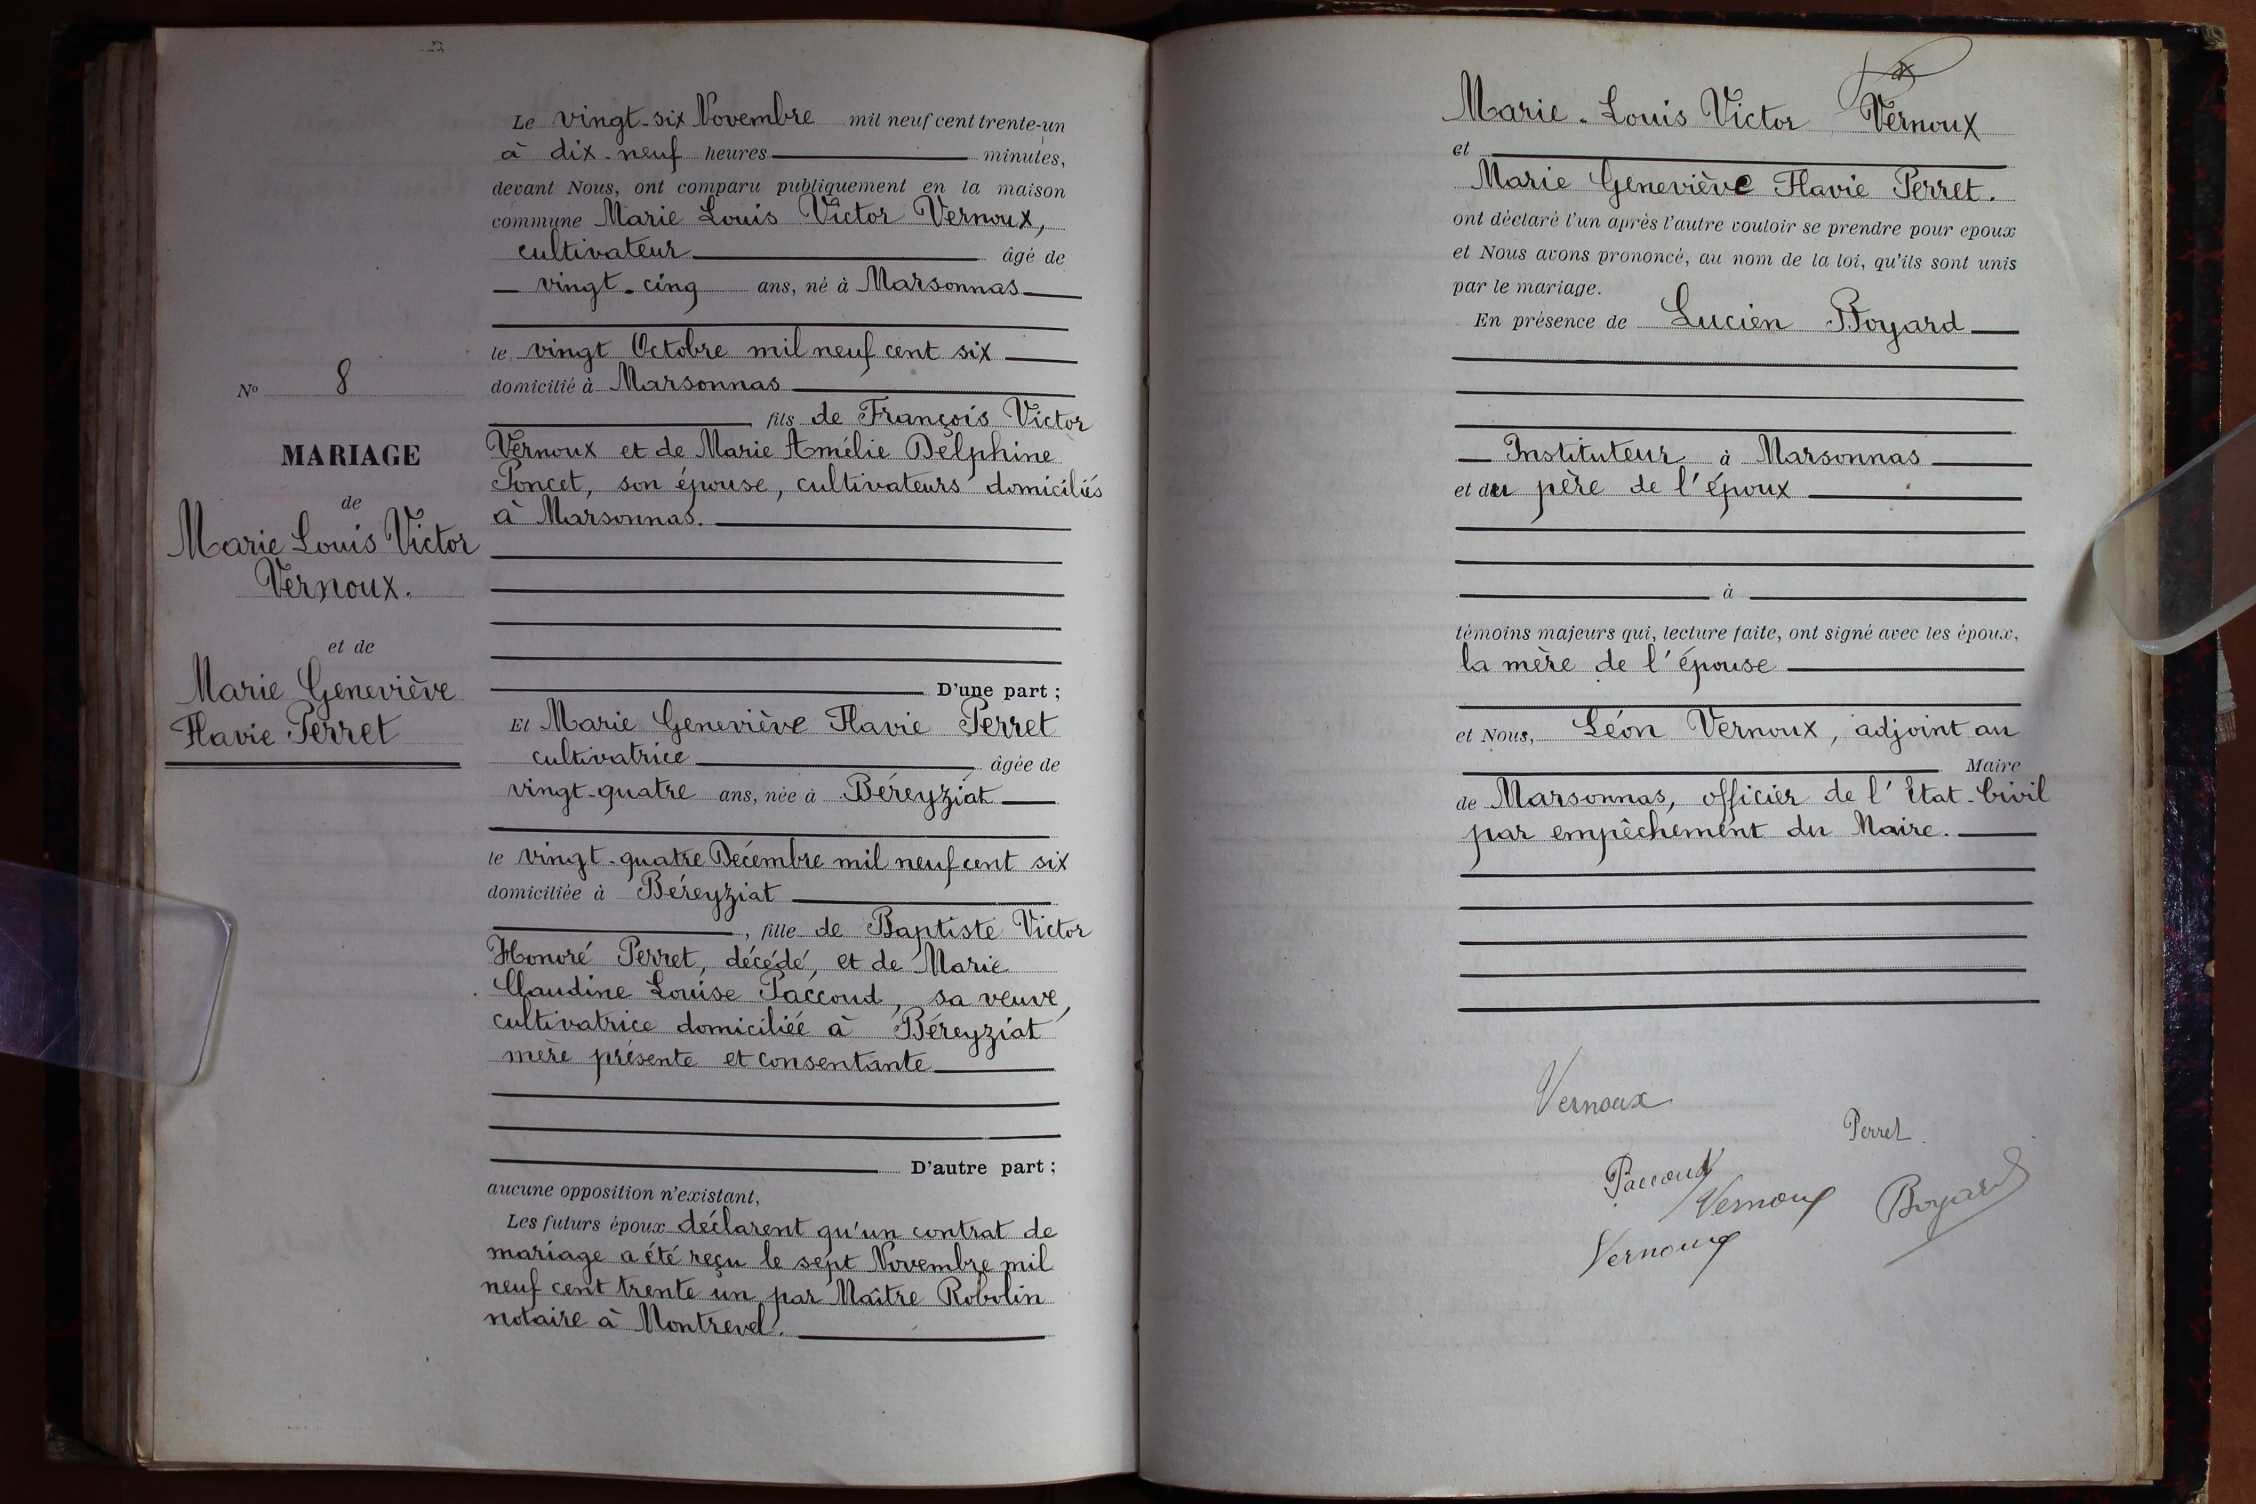 Le vingt-six Novembre mil neuf cent trente-un
à dix-neuf heures minutes,
devant Nous, ont comparu publiquement en la maison
commune Marie Louis Victor Vernoux,
cultivateur âgé de
vingt-cinq ans, né à Marsonnas
le vingt Octobre mil neuf cent six
domicilié à Marsonnas
fils de François Victor
Vernoux et de Marie Amélie Delphine
Poncet, son épouse, cultivateurs domiciliés
à Marsonnas.
D'une part ;
Et Marie Geneviève Flavie Perret
cultivatrice âgée de
vingt-quatre ans, née à Béreyziat
le vingt-quatre Décembre mil neuf cent six
domiciliée à Béreyziat
, fille de Baptiste Victor
Honoré Perret, décédé, et de Marie
Claudine Louise Paccoud, sa veuve,
cultivatrice domiciliée à Béreyziat
mère présente et consentante
D'autre part ;
aucune opposition n'existant,
Les futurs époux déclarent qu'un contrat de
mariage a été reçu le sept Novembre mil
neuf cent trente un par Maître Robolin
notaire à Montrevel.
No 8
MARIAGE
de
Marie Louis Victor
Vernoux.
et de
Marie Geneviève
Flavie Perret
Marie-Louis Victor Vernoux
et
Marie Geneviève Flavie Perret.
ont déclaré l'un après l'autre vouloir se prendre pour epoux
et Nous avons prononcé, au nom de la loi, qu'ils sont unis
par le mariage.
En présence de Lucien Boyard
Instituteur à Marsonnas
et du père de l'époux
à
témoins majeurs qui, lecture faite, ont signé avec les époux,
la mère de l'épouse
et Nous, Léon Vernoux, adjoint au
Maire
de Marsonnas, officier de l'Etat-Civil
par empêchement du Maire.
Vernoux
Perret.
Paccoud
Vernoux
Boyard
Vernoux